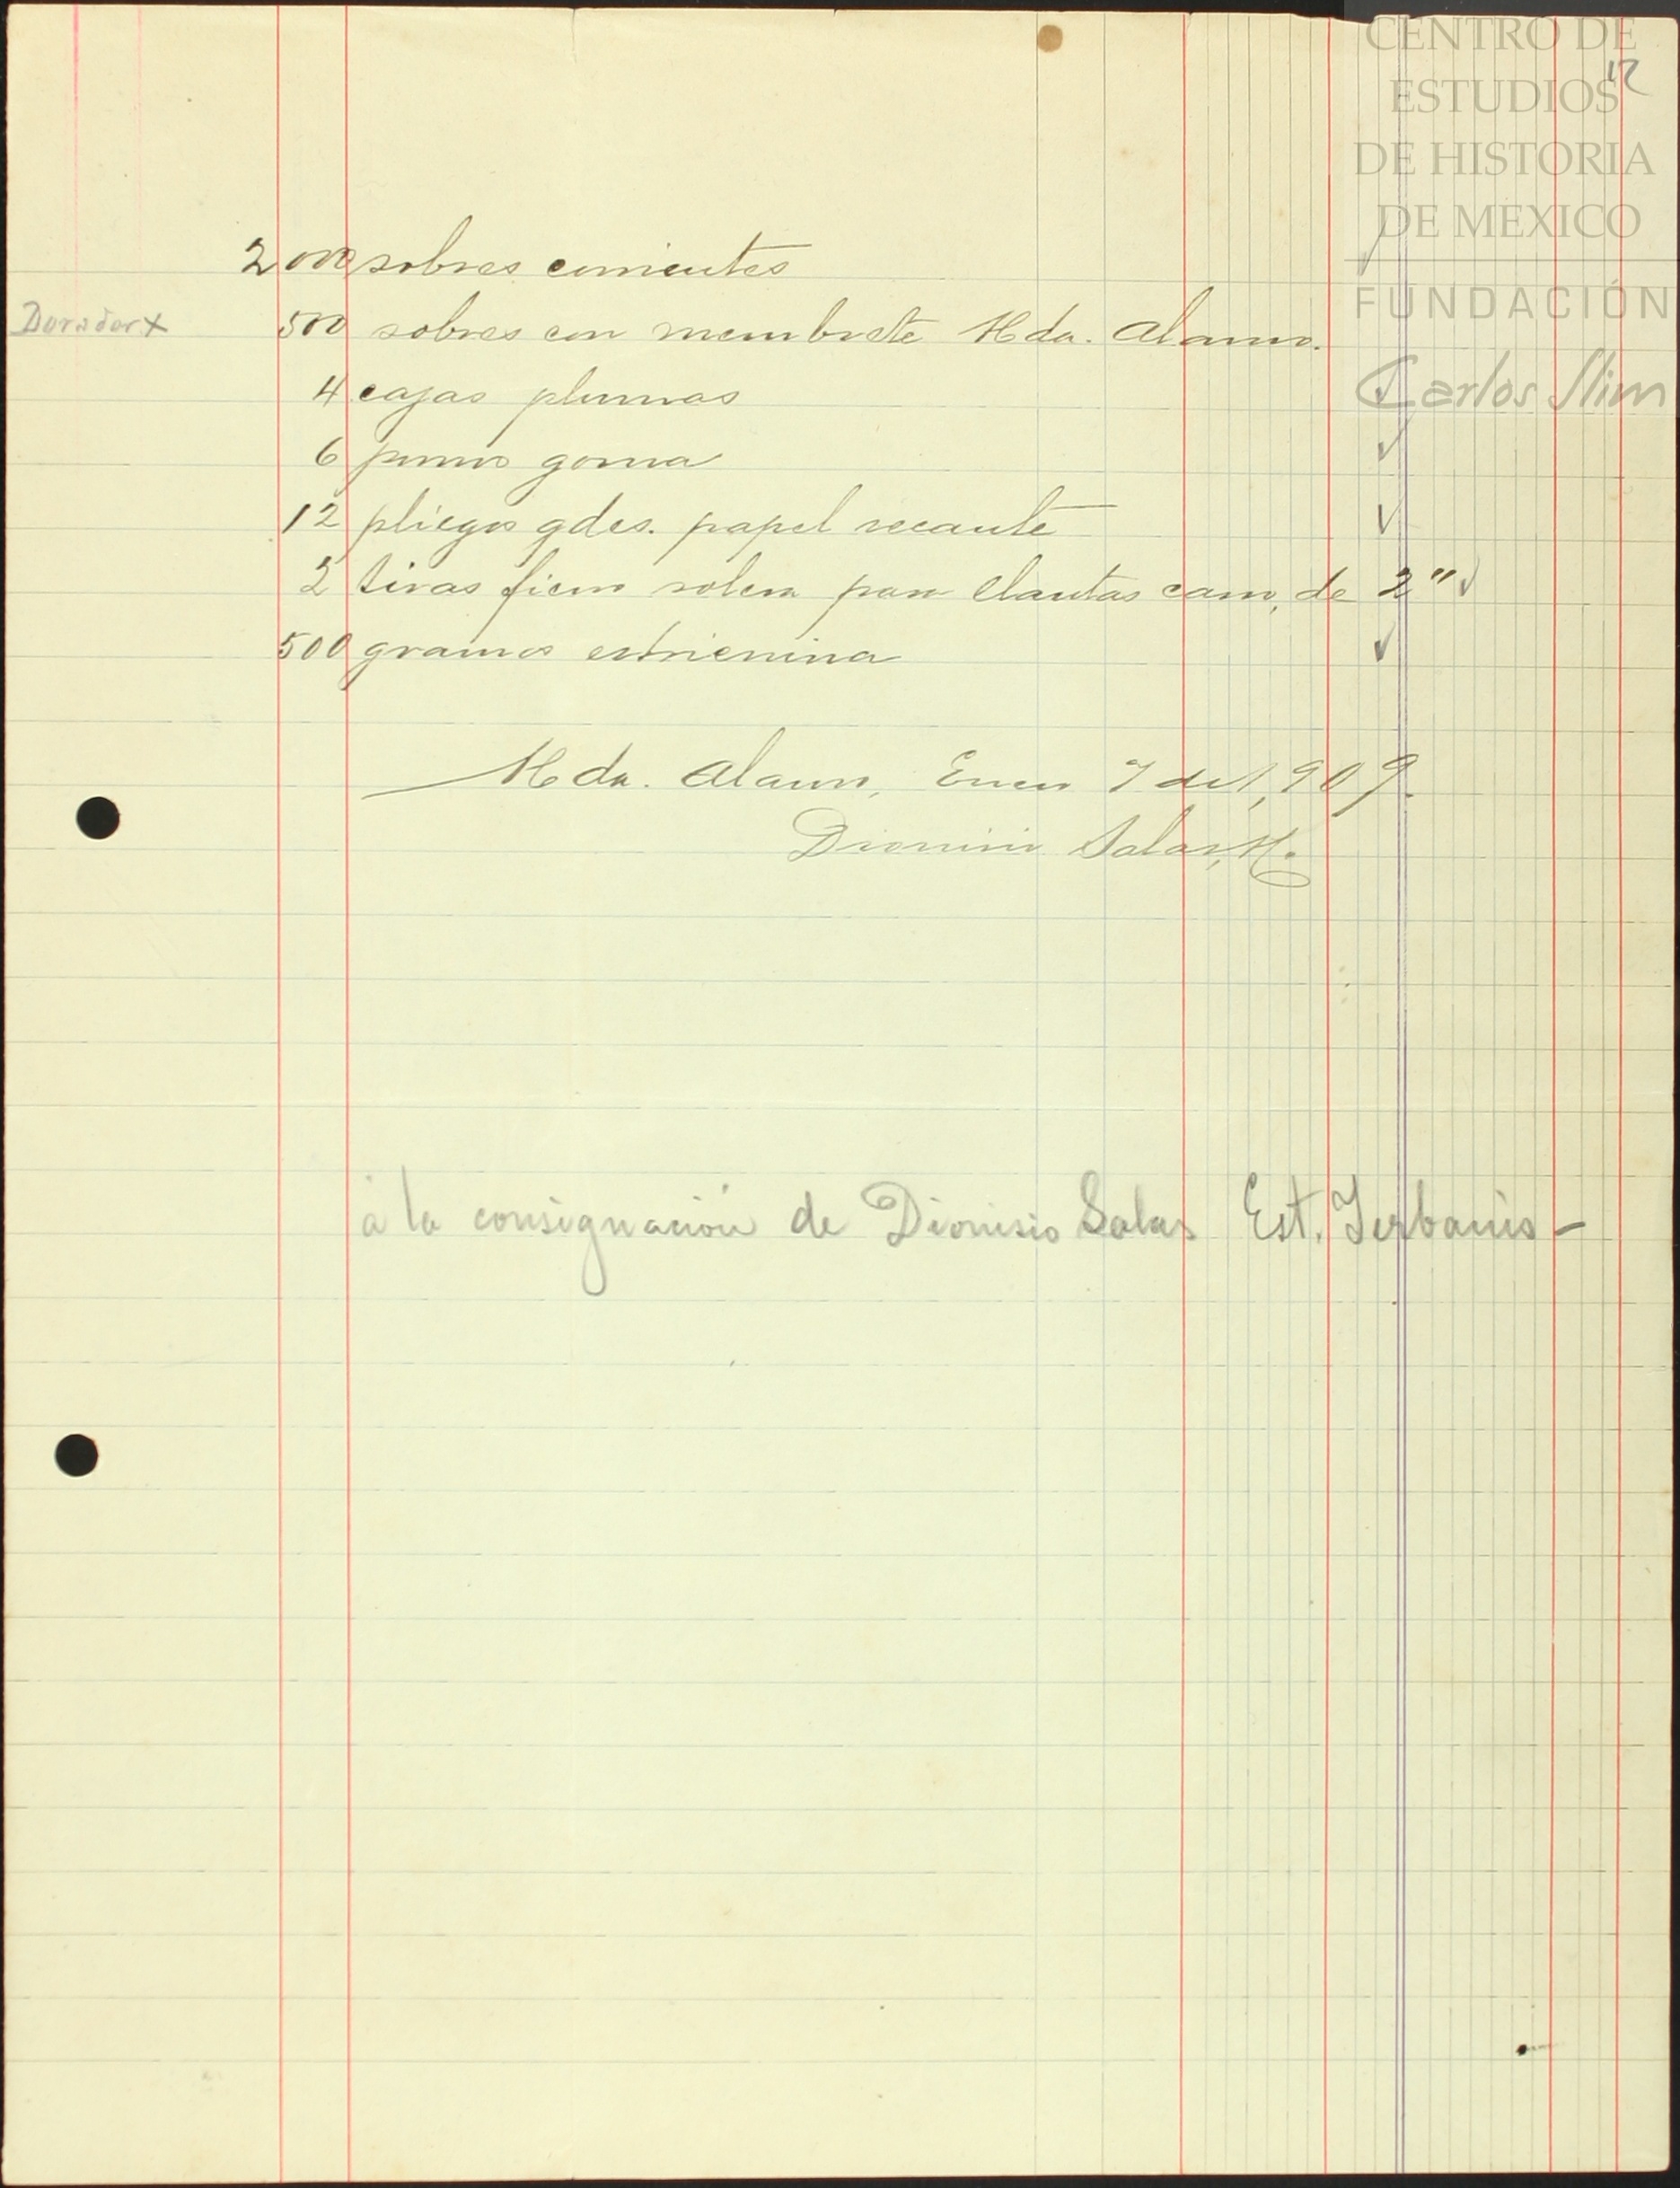 CENTRO DE
ESTUDIOS
DE HISTORIA
DE MEXICO
FUNDACIÓN
Carlos Slim
12
2000 sobres corrientes
Dorador x 500 sobres con membrete Hda. Alamo.
4 cajas plumas
6 pomos goma
12 pliegos gdes. papel secante
2 tiras fierro solera para llantas carro, de 2"
500 gramos estricnina
Hda. Alamo, Enero 7 de 1,909.
Dionisio Salas, H.
á la consignación de Dionisio Salas Est. Yerbanis-